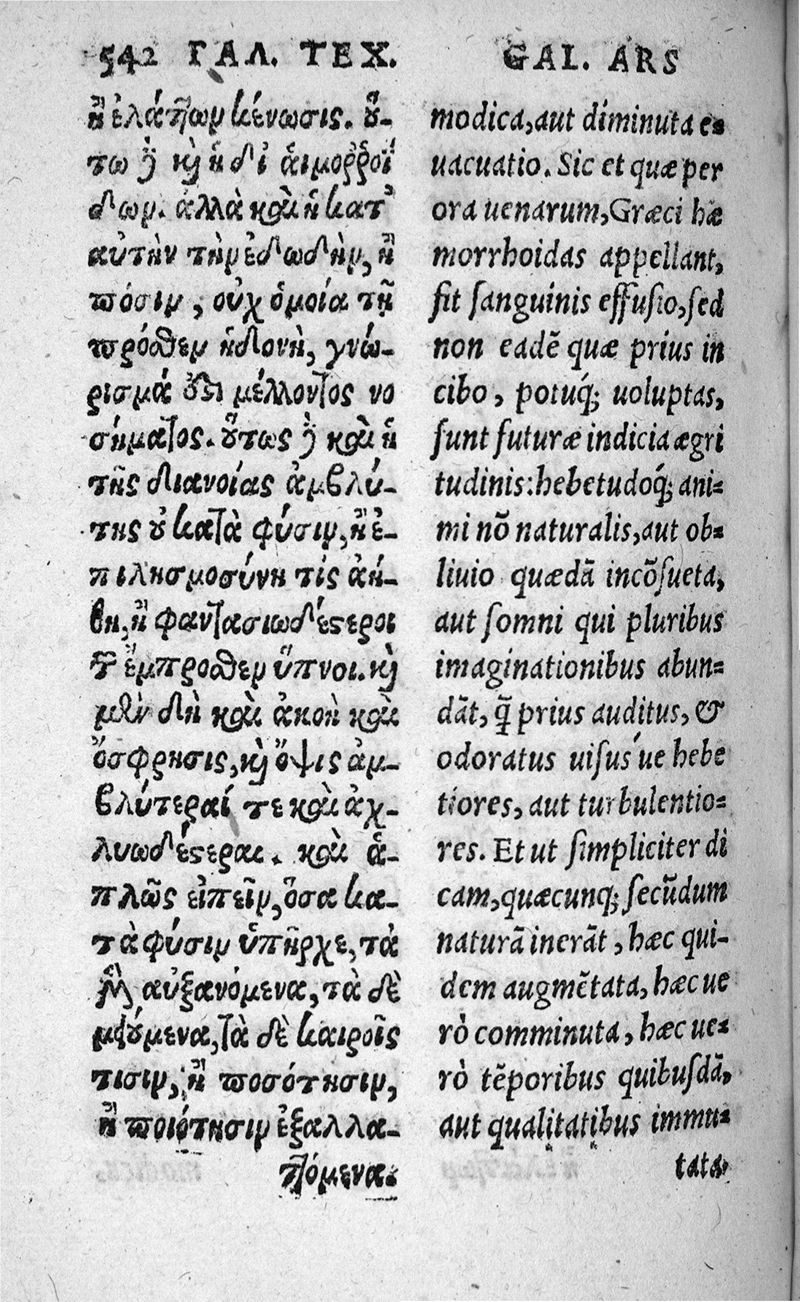 542 ΓΑΛ. ΤΕΧ.
ἢ ἐλάττων κένωσις. οὕ-
τω δὲ καὶ ἡ δι' αἱμοῤῥοΐ
δων. ἀλλὰ καὶ ἡ κατ'
αὐτὴν τὴν ἐδωδὴν, ἢ
πόσιν, οὐχ ὁμοία τῇ
πρόσθεν ἡδονὴ, γνώ-
ρισμά ἐστι μέλλοντος νο
σήματος. οὕτως δὲ καὶ ἡ
τῆς διανοίας ἀμβλύ-
της οὐ κατὰ φύσιν, ἢ ἐ-
πιλησμοσύνη τίς ἀή-
θη, ἢ φαντασιωδέστεροι
τῶν ἔμπροσθεν ὕπνοι. καὶ
μὲν δὴ καὶ ἀκοὴ καὶ
ὄσφρησις, καὶ ὄψις ἀμ-
βλύτεραί τε καὶ ἀχ-
λυωδέστεραι. καὶ ἁ-
πλῶς εἰπεῖν, ὅσα κα-
τὰ φύσιν ὑπῆρχε, τὰ
μὲν αὐξανόμενα, τὰ δὲ
μειούμενα, τὰ δὲ καιροῖς
τισιν, ἢ ποσότησιν,
ἢ ποιότησιν ἐξαλλα-
ττόμενα.
GAL. ARS
modica, aut diminuta e-
uacuatio. Sic et quæ per
ora uenarum, Græci hæ
morrhoidas appellant,
fit sanguinis effusio, sed
non eadē quæ prius in
cibo, potuq́; uoluptas,
sunt futuræ indicia ægri
tudinis: hebetudoq́; ani-
mi nō naturalis, aut ob-
liuio quædā incōsueta,
aut somni qui pluribus
imaginationibus abun-
dāt, q̃ prius auditus, &
odoratus uisus'ue hebe
tiores, aut turbulentio-
res. Et ut simpliciter di
cam, quæcunq; secūdum
naturā inerāt, hæc qui-
dem augmētata, hæc ue
rò comminuta, hæc ue-
rò tēporibus quibusdā,
aut qualitatibus immu-
tata